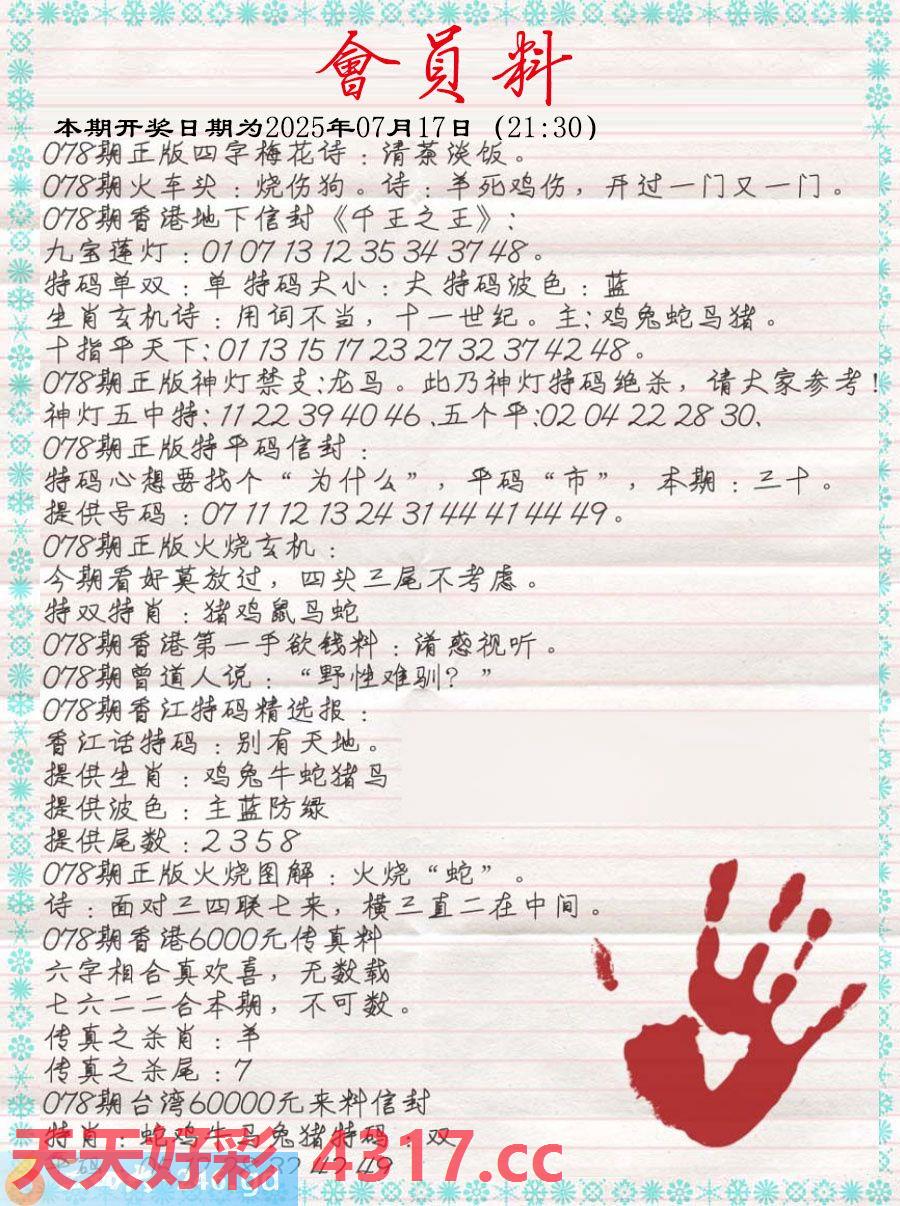 會員料
本期开奖日期为2025年07月17日（21:30）
078期正版四字梅花诗：清茶淡饭。
078期火车头：烧伤狗。诗：羊死鸡伤，开过一门又一门。
078期香港地下信封《千王之王》：
九宝莲灯：01 07 13 12 35 34 37 48。
特码单双：单 特码大小：大 特码波色：蓝
生肖玄机诗：用词不当，十一世纪。主：鸡兔蛇马猪。
十指平天下：01 13 15 17 23 27 32 37 42 48。
078期正版神灯禁支：龙马。此乃神灯特码绝杀，请大家参考！
神灯五中特：11 22 39 40 46、五个平：02 04 22 28 30、
078期正版特平码信封：
特码心想要找个“为什么”，平码“市”，本期：三十。
提供号码：07 11 12 13 24 31 44 41 44 49。
078期正版火烧玄机：
今期看好莫放过，四头三尾不考虑。
特双特肖：猪鸡鼠马蛇
078期香港第一手欲钱料：淆惑视听。
078期曾道人说：“野性难驯？”
078期香江特码精选报：
香江话特码：别有天地。
提供生肖：鸡兔牛蛇猪马
提供波色：主蓝防绿
提供尾数：2 3 5 8
078期正版火烧图解：火烧“蛇”。
诗：面对三四联七来，横三直二在中间。
078期香港6000元传真料
六字相合真欢喜，无数载
七六二二合本期，不可数。
传真之杀肖：羊
传真之杀尾：7
078期台湾60000元来料信封
特肖：蛇鸡牛马兔猪特码：双
天天好彩 4317.cc
42 49